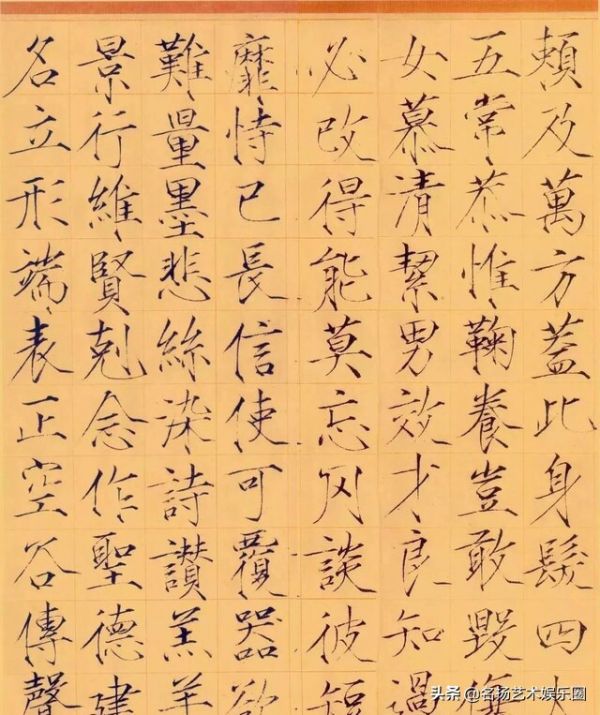 頼及萬方蓋此身髮四大
五常恭惟鞠養豈敢毀
女慕清絜男效才良知過
必改得能莫忘罔談彼短
靡恃己長信使可覆器欲
難量墨悲絲染詩讃羔羊
景行維賢剋念作聖德建
名立形端表正空谷傳聲
头条 @名扬艺术娱乐圈